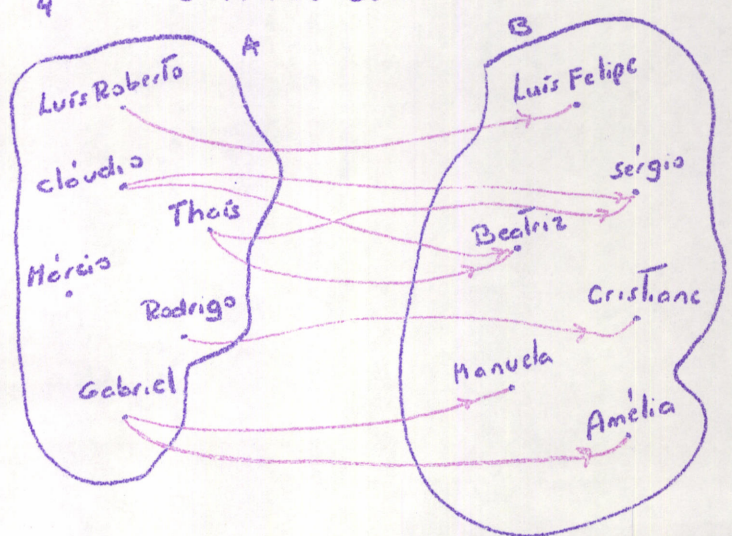 A
Luís Roberto
Cláudio
Thaís
Márcio
Rodrigo
Gabriel
B
Luís Felipe
Sérgio
Beatriz
Cristiane
Manuela
Amélia